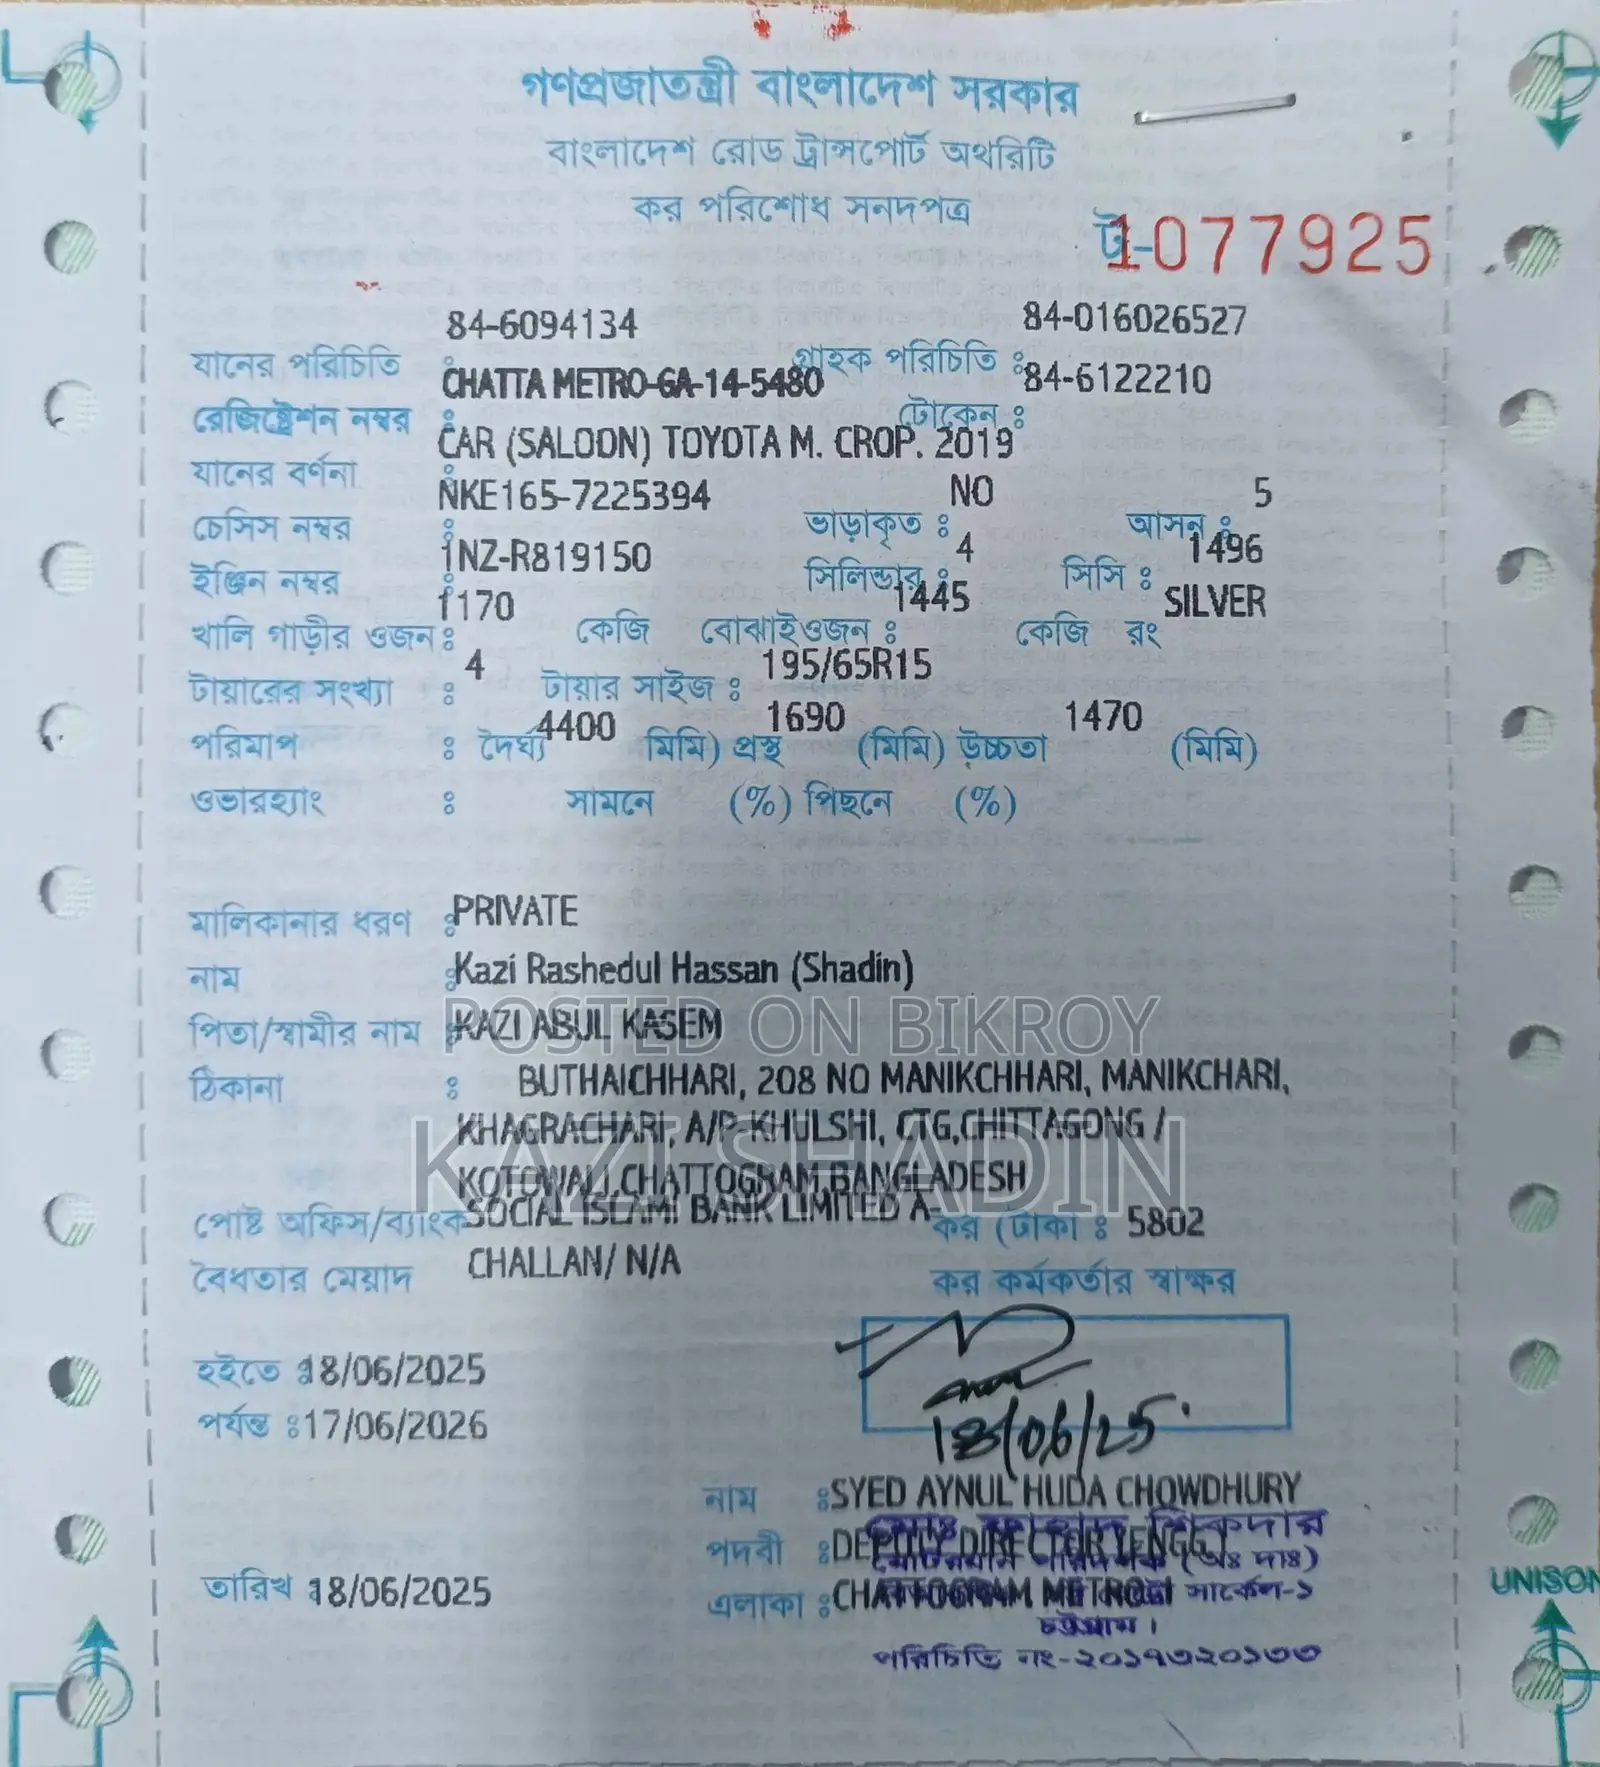 গণপ্রজাতন্ত্রী বাংলাদেশ সরকার
বাংলাদেশ রোড ট্রান্সপোর্ট অথরিটি
কর পরিশোধ সনদপত্র
ট-1077925
84-6094134 84-016026527
যানের পরিচিতি : গ্রাহক পরিচিতি :
CHATTA METRO-GA-14-5480 84-6122210
রেজিষ্ট্রেশন নম্বর : টোকেন :
CAR (SALOON) TOYOTA M. CROP. 2019
যানের বর্ণনা :
NKE165-7225394 NO 5
চেসিস নম্বর : ভাড়াকৃত : আসন :
1NZ-R819150 4 1496
ইঞ্জিন নম্বর : সিলিন্ডার : সিসি :
1170 1445 SILVER
খালি গাড়ীর ওজন : কেজি বোঝাইওজন : কেজি রং
4 195/65R15
টায়ারের সংখ্যা : টায়ার সাইজ :
4400 1690 1470
পরিমাপ : দৈর্ঘ্য মিমি) প্রস্থ (মিমি) উচ্চতা (মিমি)
ওভারহ্যাং : সামনে (%) পিছনে (%)
মালিকানার ধরণ : PRIVATE
নাম : Kazi Rashedul Hassan (Shadin)
পিতা/স্বামীর নাম : KAZI ABUL KASEM
POSTED ON BIKROY
ঠিকানা : BUTHAICHHARI, 208 NO MANIKCHHARI, MANIKCHARI,
KHAGRACHARI, A/P-KHULSHI, CTG,CHITTAGONG /
KAZI SHADIN
KOTOWALI,CHATTOGRAM,BANGLADESH
পোষ্ট অফিস/ব্যাংক SOCIAL ISLAMI BANK LIMITED A- কর (টাকা : 5802
বৈধতার মেয়াদ CHALLAN/ N/A কর কর্মকর্তার স্বাক্ষর
হইতে : 18/06/2025
পর্যন্ত : 17/06/2026
18/06/25
নাম : SYED AYNUL HUDA CHOWDHURY
শিকদার
পদবী : DEPUTY DIRECTOR (ENGG)
(অঃ দাঃ)
তারিখ : 18/06/2025 এলাকা : CHATTOGRAM METRO
সার্কেল-১
চট্টগ্রাম।
পরিচিতি নং-২০১৭৩২০১৩৩
UNISON